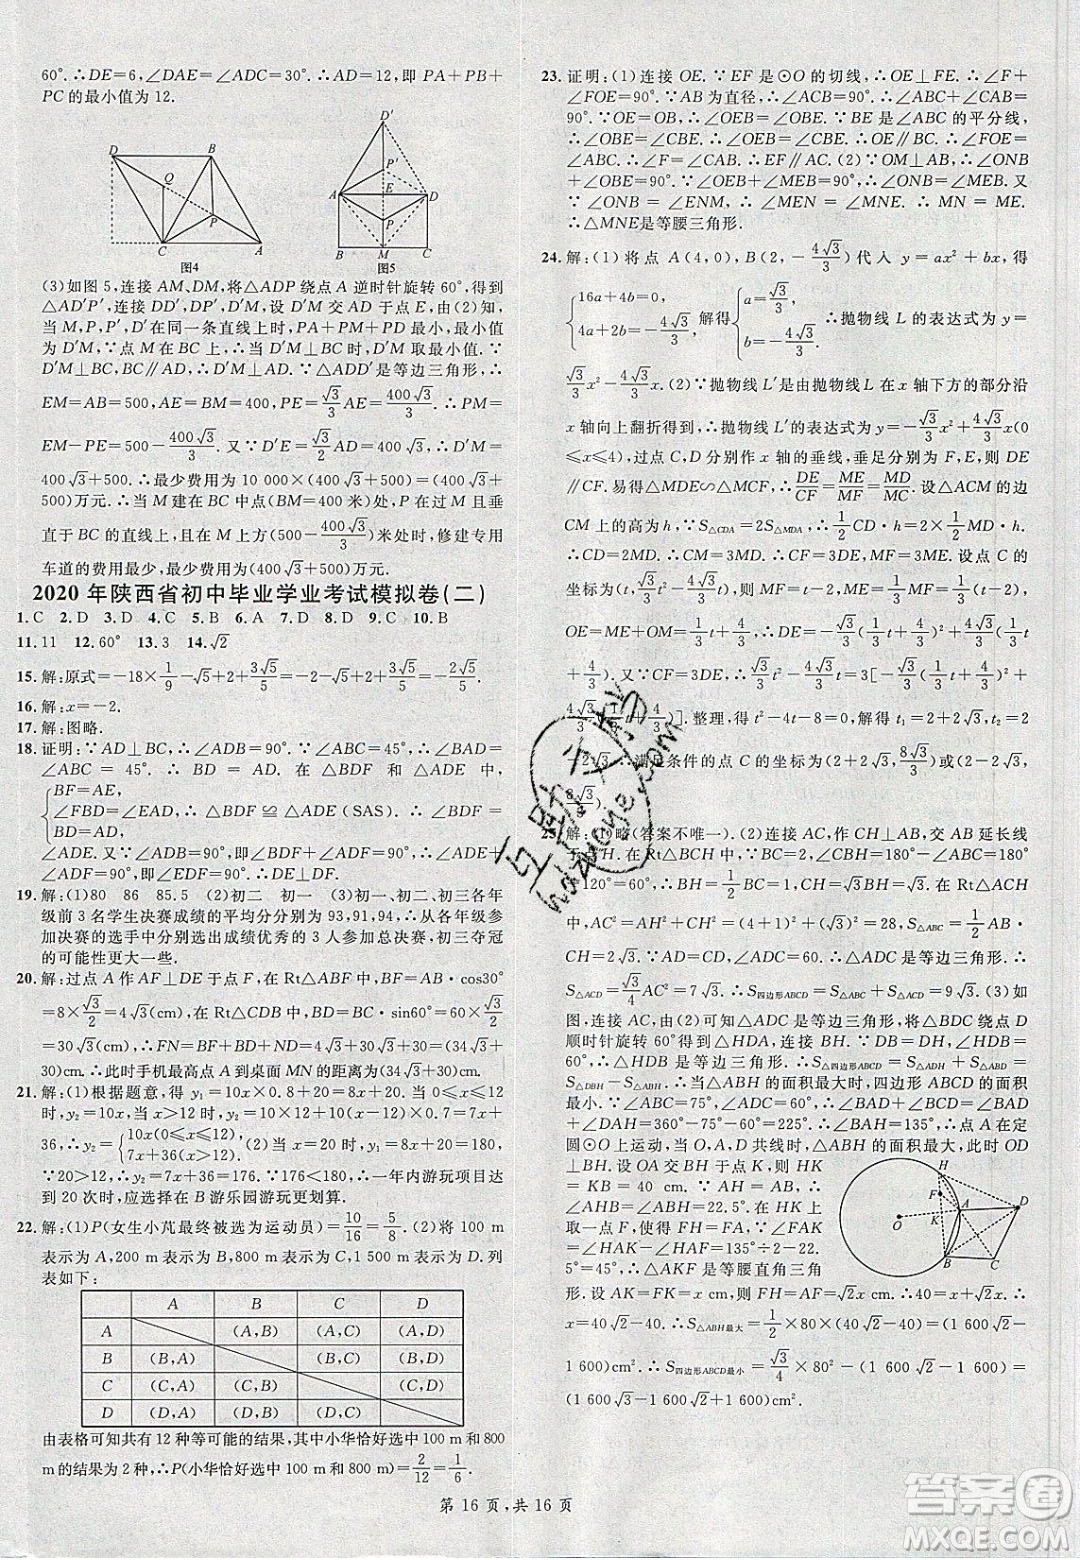 60°.∴DE=6,∠DAE=∠CDA=30°.∴AD=12,即 PA+PB+
PC的最小值为12.
图4
图5
(3)如图 5,连接 AM、DM,将△ADP 绕点 A 逆时针旋转 60°,得到
△AD′P′,连接 DD′,DP′,D′M,D′M 交 AD 于点 E,由(2)知,
当 M,P,P′,D′在同一条直线上时,PA+PM+PD 最小,最小值
为 D′M.∴当点 M 在 BC 上运动,D′M⊥BC 时,D′M 取最小值.∵
D′M⊥BC,BC∥AD,∴D′M⊥AD.∵△ADD′是等边三角形,∴
EM=AB=500,AE=1/2AD=400,PE=√3/3AE=400√3/3.∴PM=
EM-PE=500-400√3/3.又∵D′E=√3/2AD=400√3,∴D′M=
400√3+500.∴最少费用为 10 000×(400√3+500)=(400√3+
500)万元.∴当 M 建在 BC 中点(BM=400 米)处,P 在过 M 且垂
直于 BC 的直线上,且在 M 上方(500-400√3/3)米处时,修建专用
车道的费用最少,最少费用为(400√3+500)万元.
2020年陕西省初中毕业学业考试模拟卷(二)
1.C 2.D 3.D 4.C 5.B 6.A 7.D 8.D 9.C 10.B
11.11 12.60° 13.3 14.√2
15.解:原式=-18×1/9-√5+2+3√5/5=-2-√5+2+3√5/5=-2√5/5.
16.解:x=-2.
17.解:图略.
18.证明:∵AD⊥BC,∴∠ADB=90°.∵∠ABC=45°,∴∠BAD=
∠ABC=45°.∴BD=AD.在△BDF和△ADE中,
{BF=AE,
∠FBD=∠EAD,∴△BDF≌△ADE(SAS).∴∠BDF=
BD=AD,
∠ADE.又∵∠ADB=90°,∴∠BDF+∠ADF=90°.∴∠ADE+
∠ADF=90°,即∠EDF=90°.∴DE⊥DF.
19.解:(1)80 86 85.5 (2)初二 初一 (3)初一、初二、初三各年
级前 3 名学生决赛成绩的平均分分别为 93,91,94,∴从各年级参
加决赛的选手中分别选出成绩优秀的 3 人参加总决赛,初三夺冠
的可能性更大一些.
20.解:过点 A 作 AF⊥DE 于点 F,在 Rt△ABF 中,BF=AB·cos30°
=8×√3/2=4√3(cm),在 Rt△CDB 中,BD=BC·sin60°=60×√3/2
=30√3(cm).∴FN=BF+BD+DN=4√3+30√3+8=(34√3+
8)cm.∴此时手机最高点 A 到桌面 MN 的距离为(34√3+8)cm.
21.解:(1)根据题意,得 y₁=10x×0.8+20=8x+20;当 0≤x≤12
时,y₂=10x;当 x>12 时,y₂=10×12+10(x-12)×0.7=7x+
36,∴y₂={10x(0≤x≤12), 7x+36(x>12). (2)当 x=20 时,y₁=8x+20=180,
∵20>12,∴y₂=7x+36=176.∵176<180,∴一年内游玩项目
达到 20 次时,应选择在 B 游乐园游玩更划算.
22.解:(1)P(女生小芃最终被选为运动员)=10/16=5/8. (2)将 100 m
表示为 A,200 m 表示为 B,800 m 表示为 C,1 500 m 表示为 D.列
表如下:
A B C D
A (A,B) (A,C) (A,D)
B (B,A) (B,C) (B,D)
C (C,A) (C,B) (C,D)
D (D,A) (D,B) (D,C)
由表格可知共有 12 种等可能的结果,其中小华恰好选中 100 m 和 800
m 的结果为 2 种,∴P(小华恰好选中 100 m 和 800 m)=2/12=1/6.
23.证明:(1)连接 OE.∵EF 是⊙O 的切线,∴OE⊥FE.∴∠F+
∠FOE=90°.∵AB为直径,∴∠ACB=90°.∴∠ABC+∠CAB=
90°.∵OE=OB,∴∠OEB=∠OBE.∵BE 是∠ABC 的平分线,
∴∠OBE=∠CBE.∴∠OEB=∠CBE.∴OE∥BC.∴∠FOE=
∠ABC.∴∠F=∠CAB. (2)∵OM⊥AB,∴∠ONB
+∠OBE=90°.∵∠OEB+∠MEB=90°,∠OEB=
∠OBE,∴∠ONB=∠MEB=90°.∴∠MEN=90°.又
∵∠ONB=∠ENM,∴∠MEN=∠MNE.∴MN=ME.
∴△MNE是等腰三角形.
24.解:(1)将点 A(4,0),B(2,-4√3/3)代入 y=ax²+bx,得
{16a+4b=0, 4a+2b=-4√3/3, 解得{a=√3/3, b=-4√3/3. ∴抛物线 L 的表达式为 y=
√3/3x²-4√3/3x.(2)∵抛物线L′是由抛物线 L 在 x 轴下方的部分沿
x 轴向上翻折得到,∴抛物线 L′的表达式为 y=-√3/3x²+4√3/3x(0
≤x≤4),过点 C,D 分别作 x 轴的垂线,垂足分别为 F,E,则 DE
∥CF.易得△MDE∽△MCF,∴DE/CF=ME/MF=MD/MC.设△ACM 的边
CM 上的高为 h,∵S△CDA=2S△MDA,∴1/2CD·h=2×1/2MD·h.
OE=ME+OM=
∵CF=3DE,∴
整理,得 t²-4t-8=0,解得 t₁=2+2√3,t₂=2
-2√3.∴满足条件的点 C 的坐标为(2+2√3,8√3/3)或(2-2√3,
8√3/3).
25.解:(1)略(答案不唯一). (2)连接 AC,作 CH⊥AB,交 AB 延长线
于
中,AC²=AH²+CH²=(4+1)²+(√3)²=28.∵S△ABC=1/2×
S△ACD=√3/4AC²=7√3.∴S四边形ABCD=S△ABC+S△ACD=9√3.(3)如
图,连接 AC,由(2)可知△ADC 是等边三角形,将△BDC 绕点 D
顺时针旋转 60°得到△HDA,连接 HB.∵DB=DH,∠BDH=
60°,∴△HDB 是等边三角形.∴S四边形ABCD=S△ADB+S△ADH=
S△DBH-S△ABH.∴当△ABH 的面积最大时,四边形 ABCD 的面积
最小.∵∠ABC=75°,∠ADC=60°,∴∠DCB+∠BAD=∠BAD
+∠DAH=360°-75°-60°=225°.∴∠BAH=135°.∴点 A 在定
圆⊙O 上运动,当 O,A,D 共线时,△ABH 的面积最大,此时 OD
⊥BH.设 OA 交 BH 于点 K,则 HK
=KB=40 cm.∵AK⊥BH,∴AH
=AB,∠AHB=∠ABH=22.5°.在
HK 上取一点 F,使得 FH=FA,则
∠HAF=∠AHF=22.5°.∴∠FAK
=∠HAK-∠HAF=67.5°-22.
5°=45°.∴△AKF 是等腰直角三角
形.设 AK=FK=x cm,则 FH=AF=√2x cm.∴40=x+√2x.∴
x=40√2-40.∴S△ABH最大=1/2×80×(40√2-40)=(1 600√2-
1 600)cm².∴S四边形ABCD最小=√3/4×80²-(1 600√2-1 600)=
(1 600√3-1 600√2+1 600)cm².
第 16 页,共 16 页
答案圈
MXQE.COM